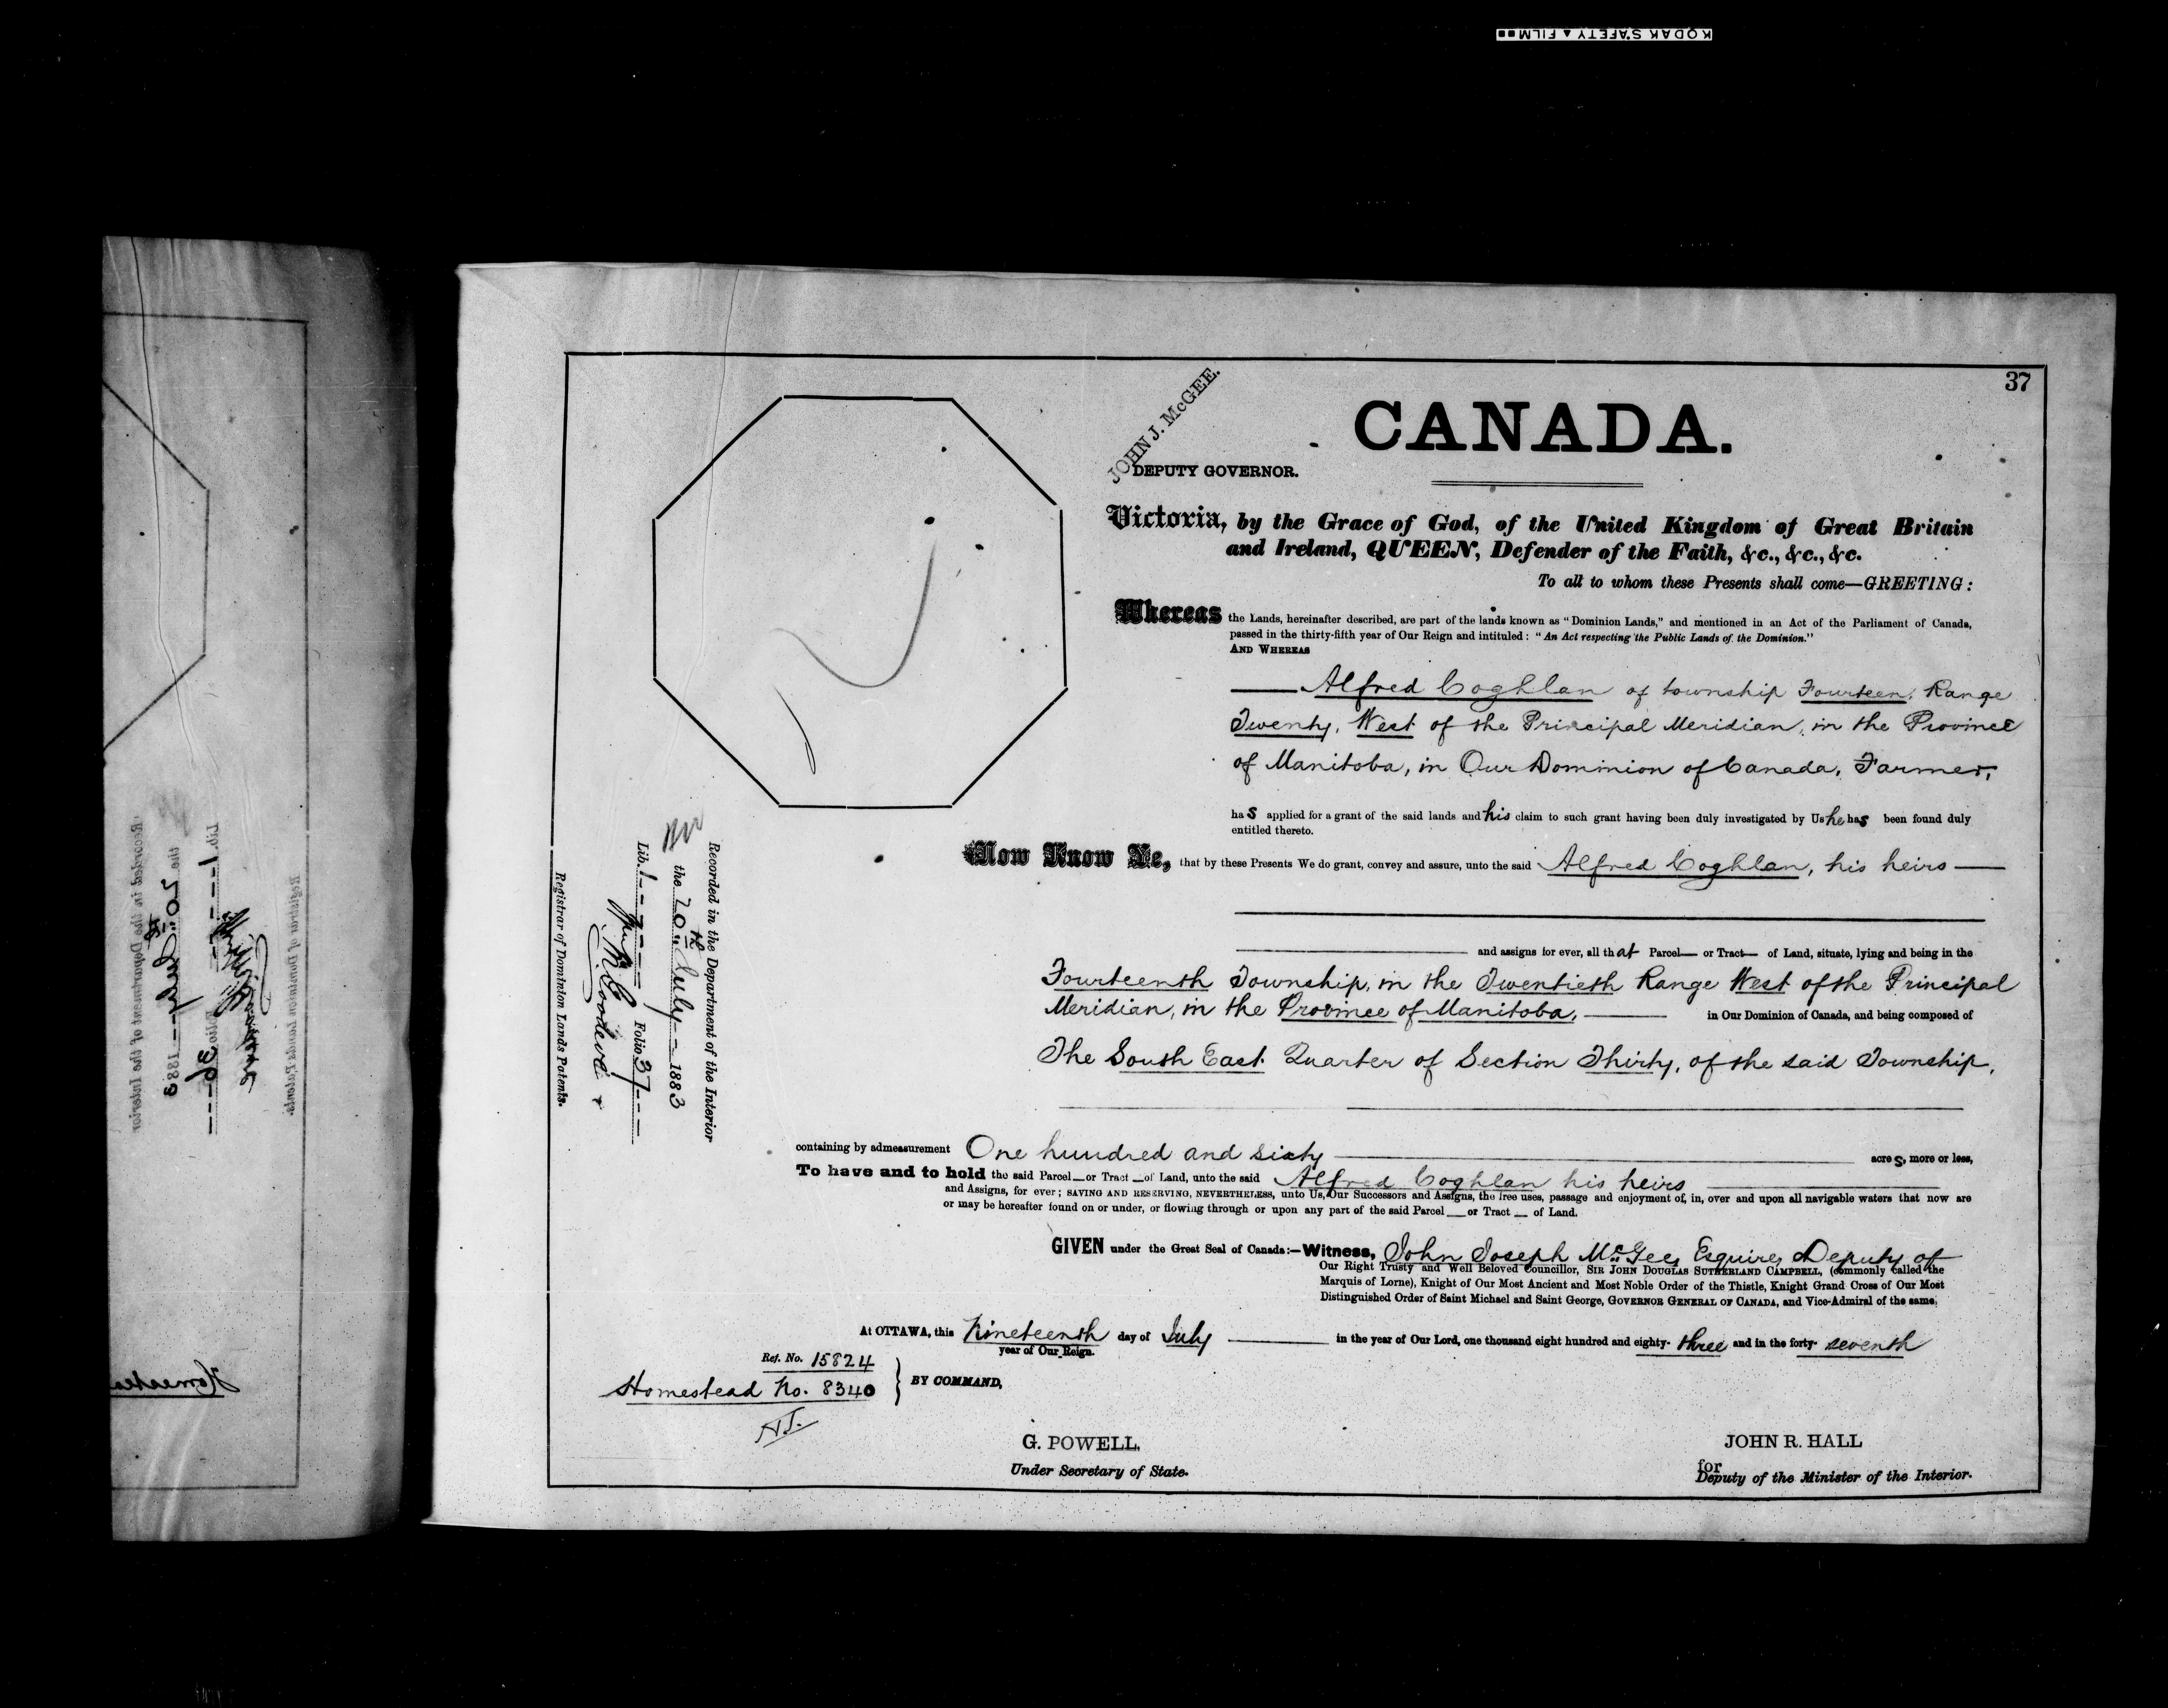 KODAK SAFETY ▲ FILM
37
JOHN J. McGEE.
DEPUTY GOVERNOR.
CANADA.
Victoria, by the Grace of God, of the United Kingdom of Great Britain
and Ireland, QUEEN, Defender of the Faith, &c., &c., &c.
To all to whom these Presents shall come—GREETING:
Whereas the Lands, hereinafter described, are part of the lands known as "Dominion Lands," and mentioned in an Act of the Parliament of Canada,
passed in the thirty-fifth year of Our Reign and intituled: "An Act respecting the Public Lands of the Dominion."
AND WHEREAS
Alfred Coghlan of township Fourteen, Range
Twenty, West of the Principal Meridian, in the Province
of Manitoba, in Our Dominion of Canada, Farmer,
has applied for a grant of the said lands and his claim to such grant having been duly investigated by Us he has been found duly
entitled thereto.
Now Know Ye, that by these Presents We do grant, convey and assure, unto the said Alfred Coghlan, his heirs
and assigns for ever, all that Parcel— or Tract— of Land, situate, lying and being in the
Fourteenth Township, in the Twentieth Range West of the Principal
Meridian, in the Province of Manitoba, in Our Dominion of Canada, and being composed of
The South East Quarter of Section Thirty, of the said Township,
containing by admeasurement One hundred and sixty acres, more or less,
To have and to hold the said Parcel—or Tract—of Land, unto the said Alfred Coghlan his heirs
and Assigns, for ever; SAVING AND RESERVING, NEVERTHELESS, unto Us, Our Successors and Assigns, the free uses, passage and enjoyment of, in, over and upon all navigable waters that now are
or may be hereafter found on or under, or flowing through or upon any part of the said Parcel—or Tract — of Land.
GIVEN under the Great Seal of Canada:—Witness, John Joseph McGee, Esquire, Deputy of
Our Right Trusty and Well Beloved Councillor, SIR JOHN DOUGLAS SUTHERLAND CAMPBELL, (commonly called the
Marquis of Lorne), Knight of Our Most Ancient and Most Noble Order of the Thistle, Knight Grand Cross of Our Most
Distinguished Order of Saint Michael and Saint George, GOVERNOR GENERAL OF CANADA, and Vice-Admiral of the same.
At OTTAWA, this Nineteenth day of July in the year of Our Lord, one thousand eight hundred and eighty-three and in the forty-seventh
year of Our Reign.
Ref. No. 15824
Homestead No. 8340
BY COMMAND,
G. POWELL.
Under Secretary of State.
JOHN R. HALL
for
Deputy of the Minister of the Interior.
Recorded in the Department of the Interior
the 20th July 1883
Lib. 1 Folio 37
Registrar of Dominion Lands Patents.
Recorded in the Department of the Interior
the 20th July 1883
Lib. 1 Folio 36
Registrar of Dominion Lands Patents.
Homestead